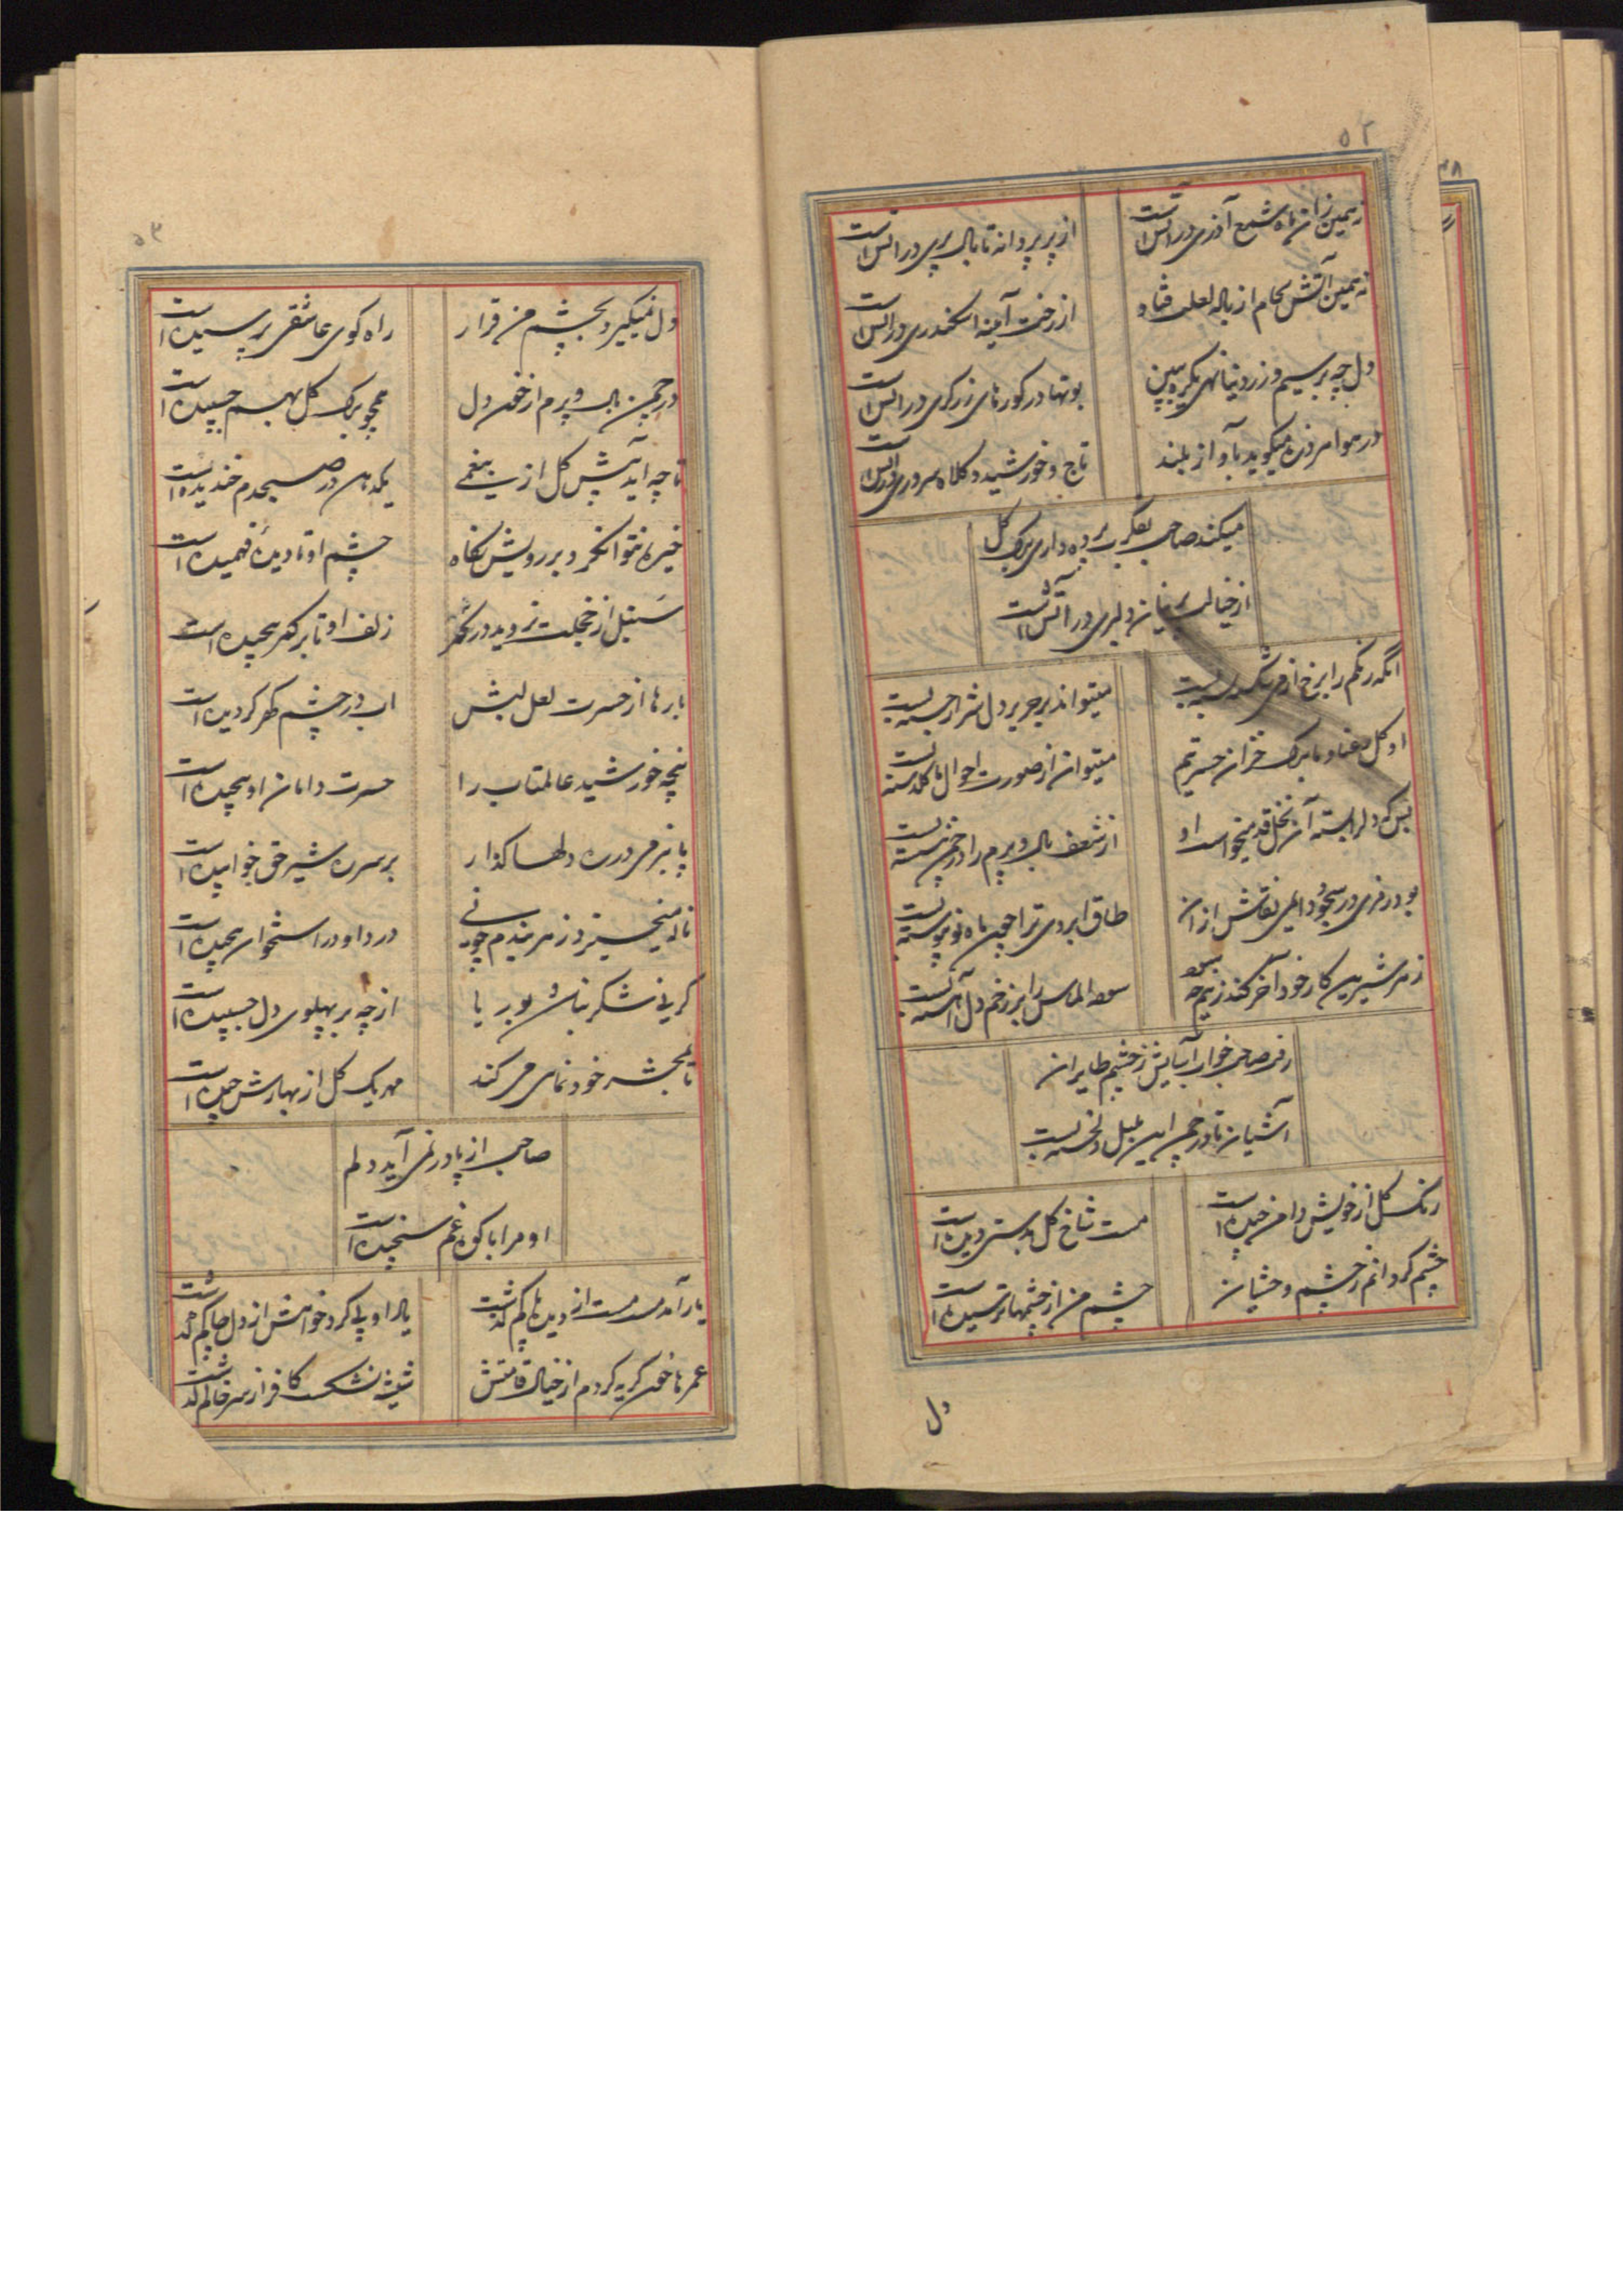 ۵۲
نه همین زان ماه شمع آذری در آتش است
از پر پروانه تا بال پری در آتش است
نه همین آتش بجام از باله لعلت فتاد
از رخت آیینه اسکندری در آتش است
دل چه بر سیم و زر دنیا نهی یکره ببین
بوتها در کورهای زرکری در آتش است
در هوا هر ذره میکوید بآواز بلند
تاج خورشید و کلاه سروری در آتش است
میکند صاحب بفکرت پرده داری برک کل
از خیالت بنیان دلبری در آتش است
میتواند بر حریر دل شرار جسته بست
او کل رعنا و ما برک خزان حسرتیم
میتوان از صورت احوال ما کلدسته بست
بس که دلرا بسته آن نخل قد میخواست او
از ضعف بال و پرم را در چمن
طاق ابروی ترا چون ماه نو پیوسته بست
زهر شیرین کار خود آخر کند
سوده الماس را بر زخم دل آهسته بست
رفت صاحب خواب آسایش ز چشم طایران
آشیان تا در چمن این بلبل دلخسته بست
رنک کل از خویش دامن چیده است
مست شاخ کل بدستش دیده است
چشم کرد انم ز چشم وحشیان
چشم من از چشمها ترسیده است
دل
۵۳
دل نمیکیرد بچشم من قرار
راه کوی عاشقی پرسیده است
در چمن بال و پرم از خون دل
همچو برک کل بهم چسپیده است
تا چه آید پیش کل از بیغمی
یکدهان در صبحدم خندیده است
خیره نتوان کرد بر رویش نکاه
چشم او تا دیده فهمیده است
سنبل از خجلت نروید در
زلف او تا بر کمر پیچیده است
بارها از حسرت لعل لبش
اب در چشم کهر کردیده است
پنجه خورشید عالمتاب را
حسرت دامان او پیچیده است
پا نبر در ره دلها کذار
بر سر ره شیر حق خوابیده است
ناله میخیزد ز هر بندم چو نی
درد او در استخوان پیچیده است
کر نی شکر نباشد بوریا
از چه بر پهلوی دل چسپیده است
تا بمحشر خودنمایی می کند
هر یک کل از بهارش چیده است
صاحب از پا در نمی آید دلم
او مرا با کوه غم سنجیده است
یار آمد مست مست از دیده پاکم کذشت
عمرها خون کریه کردم از خیال قامتش
شیشه نشکست کافر از سر خاکم کذشت